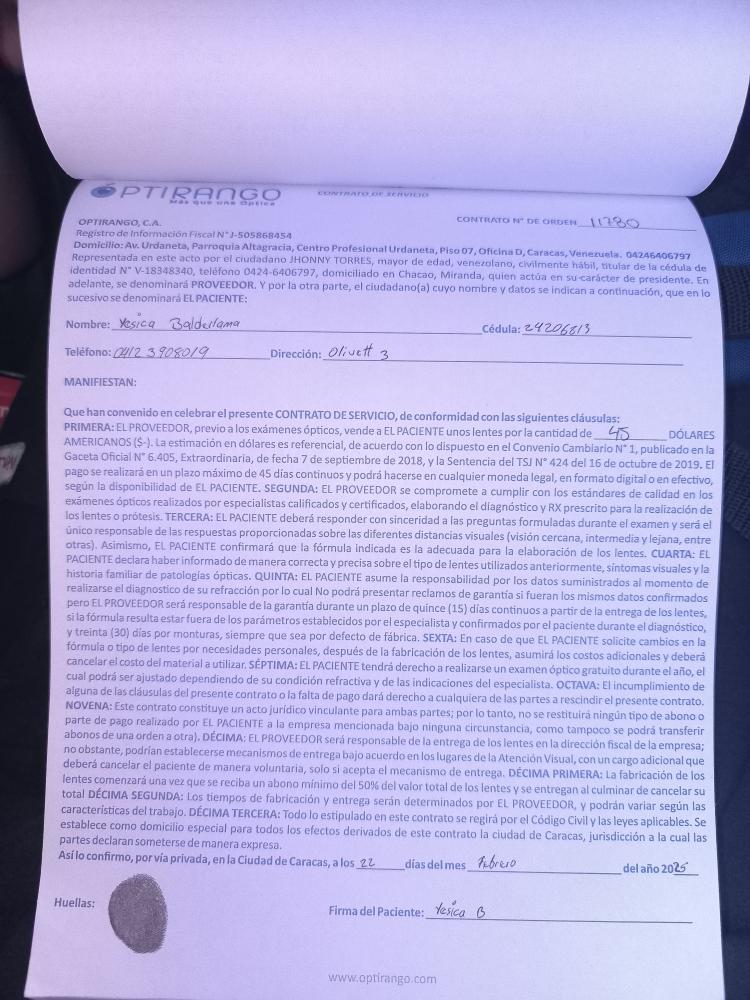 OPTIRANGO
Más que una Óptica
CONTRATO DE SERVICIO
CONTRATO N° DE ORDEN 11780
OPTIRANGO, C.A.
Registro de Información Fiscal N°J-505868454
Domicilio: Av. Urdaneta, Parroquia Altagracia, Centro Profesional Urdaneta, Piso 07, Oficina D, Caracas, Venezuela. 04246406797
Representada en este acto por el ciudadano JHONNY TORRES, mayor de edad, venezolano, civilmente hábil, titular de la cédula de
identidad N° V-18348340, teléfono 0424-6406797, domiciliado en Chacao, Miranda, quien actúa en su carácter de presidente. En
adelante, se denominará PROVEEDOR. Y por la otra parte, el ciudadano(a) cuyo nombre y datos se indican a continuación, que en lo
sucesivo se denominará EL PACIENTE:
Nombre: Yesica Balderrama Cédula: 24206813
Teléfono: 0412 3908019 Dirección: Olivett 3
MANIFIESTAN:
Que han convenido en celebrar el presente CONTRATO DE SERVICIO, de conformidad con las siguientes cláusulas:
PRIMERA: EL PROVEEDOR, previo a los exámenes ópticos, vende a EL PACIENTE unos lentes por la cantidad de 45 DÓLARES
AMERICANOS ($-). La estimación en dólares es referencial, de acuerdo con lo dispuesto en el Convenio Cambiario N° 1, publicado en la
Gaceta Oficial N° 6.405, Extraordinaria, de fecha 7 de septiembre de 2018, y la Sentencia del TSJ N° 424 del 16 de octubre de 2019. El
pago se realizará en un plazo máximo de 45 días continuos y podrá hacerse en cualquier moneda legal, en formato digital o en efectivo,
según la disponibilidad de EL PACIENTE. SEGUNDA: EL PROVEEDOR se compromete a cumplir con los estándares de calidad en los
exámenes ópticos realizados por especialistas calificados y certificados, elaborando el diagnóstico y RX prescrito para la realización de
los lentes o prótesis. TERCERA: EL PACIENTE deberá responder con sinceridad a las preguntas formuladas durante el examen y será el
único responsable de las respuestas proporcionadas sobre las diferentes distancias visuales (visión cercana, intermedia y lejana, entre
otras). Asimismo, EL PACIENTE confirmará que la fórmula indicada es la adecuada para la elaboración de los lentes. CUARTA: EL
PACIENTE declara haber informado de manera correcta y precisa sobre el tipo de lentes utilizados anteriormente, síntomas visuales y la
historia familiar de patologías ópticas. QUINTA: EL PACIENTE asume la responsabilidad por los datos suministrados al momento de
realizarse el diagnostico de su refracción por lo cual No podrá presentar reclamos de garantía si fueran los mismos datos confirmados
pero EL PROVEEDOR será responsable de la garantía durante un plazo de quince (15) días continuos a partir de la entrega de los lentes,
si la fórmula resulta estar fuera de los parámetros establecidos por el especialista y confirmados por el paciente durante el diagnóstico,
y treinta (30) días por monturas, siempre que sea por defecto de fábrica. SEXTA: En caso de que EL PACIENTE solicite cambios en la
fórmula o tipo de lentes por necesidades personales, después de la fabricación de los lentes, asumirá los costos adicionales y deberá
cancelar el costo del material a utilizar. SÉPTIMA: EL PACIENTE tendrá derecho a realizarse un examen óptico gratuito durante el año, el
cual podrá ser ajustado dependiendo de su condición refractiva y de las indicaciones del especialista. OCTAVA: El incumplimiento de
alguna de las cláusulas del presente contrato o la falta de pago dará derecho a cualquiera de las partes a rescindir el presente contrato.
NOVENA: Este contrato constituye un acto jurídico vinculante para ambas partes; por lo tanto, no se restituirá ningún tipo de abono o
parte de pago realizado por EL PACIENTE a la empresa mencionada bajo ninguna circunstancia, como tampoco se podrá transferir
abonos de una orden a otra). DÉCIMA: EL PROVEEDOR será responsable de la entrega de los lentes en la dirección fiscal de la empresa;
no obstante, podrían establecerse mecanismos de entrega bajo acuerdo en los lugares de la Atención Visual, con un cargo adicional que
deberá cancelar el paciente de manera voluntaria, solo si acepta el mecanismo de entrega. DÉCIMA PRIMERA: La fabricación de los
lentes comenzará una vez que se reciba un abono mínimo del 50% del valor total de los lentes y se entregan al culminar de cancelar su
total DÉCIMA SEGUNDA: Los tiempos de fabricación y entrega serán determinados por EL PROVEEDOR, y podrán variar según las
características del trabajo. DÉCIMA TERCERA: Todo lo estipulado en este contrato se regirá por el Código Civil y las leyes aplicables. Se
establece como domicilio especial para todos los efectos derivados de este contrato la ciudad de Caracas, jurisdicción a la cual las
partes declaran someterse de manera expresa.
Así lo confirmo, por vía privada, en la Ciudad de Caracas, a los 22 días del mes Febrero del año 2025
Huellas:
Firma del Paciente: Yesica B
www.optirango.com